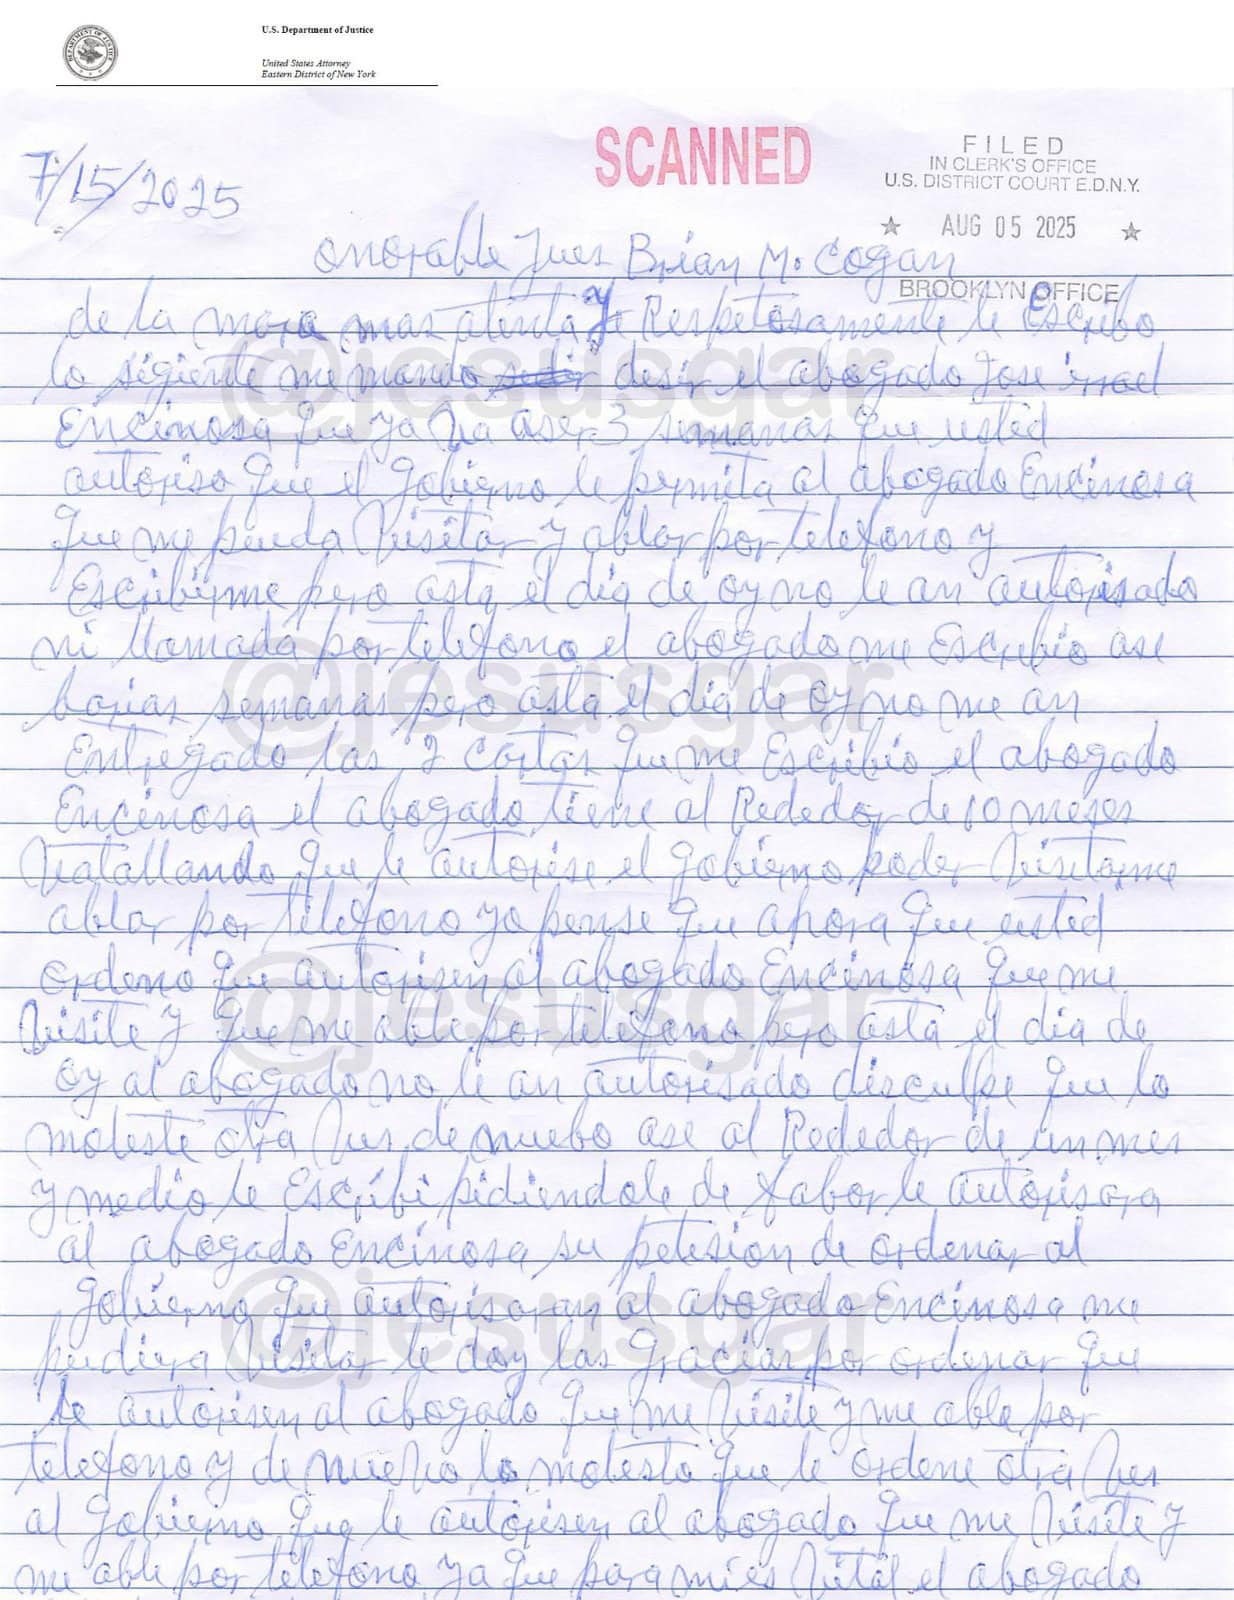 U.S. Department of Justice
United States Attorney
Eastern District of New York
SCANNED
FILED
IN CLERK'S OFFICE
U.S. DISTRICT COURT E.D.N.Y.
★ AUG 05 2025 ★
BROOKLYN OFFICE
7/15/2025
Onorable Jues Brian M. Cogan
de la mara mas atenta y Respetosamente le Escribo
lo sigiente me mando desir el abogado Jose isrrael
Encinosa que ya Va aser 3 semanas que usted
autoriso que el gobierno le permita al abogado Encinosa
que me pueda Visitar y ablar por telefono y
Escribirme pero asta el dia de oy no le an autorisado
ni llamada por telefono el abogado me Escribio ase
barias semanas pero asta el dia de oy no me an
Entregado las 2 cartas que me Escribio el abogado
Encinosa el abogado tiene al Rededor de 10 meses
Vatallando que le autorise el gobierno poder Visitarme
ablar por telefono yo pense que ahora que usted
ordeno que autorisen al abogado Encinosa que me
Visite y que me able por telefono pero asta el dia de
oy al abogado no le an autorisado disculpe que lo
moleste otra Ves de nuebo ase al Rededor de un mes
y medio le Escribi pidiendole de fabor le autorisara
al abogado Encinosa su petesion de ordenar al
gobierno que autorisaran al abogado Encinosa me
pudiera Visitar le doy las gracias por ordenar que
le autorisen al abogado que me Visite y me able por
telefono y de nueVo lo molesto que le ordene otra Ves
al gobierno que le autorisen al abogado que me Visite y
me able por telefono ya que para mi es Vital el abogado
@jesusgar
@jesusgar
@jesusgar
@jesusgar